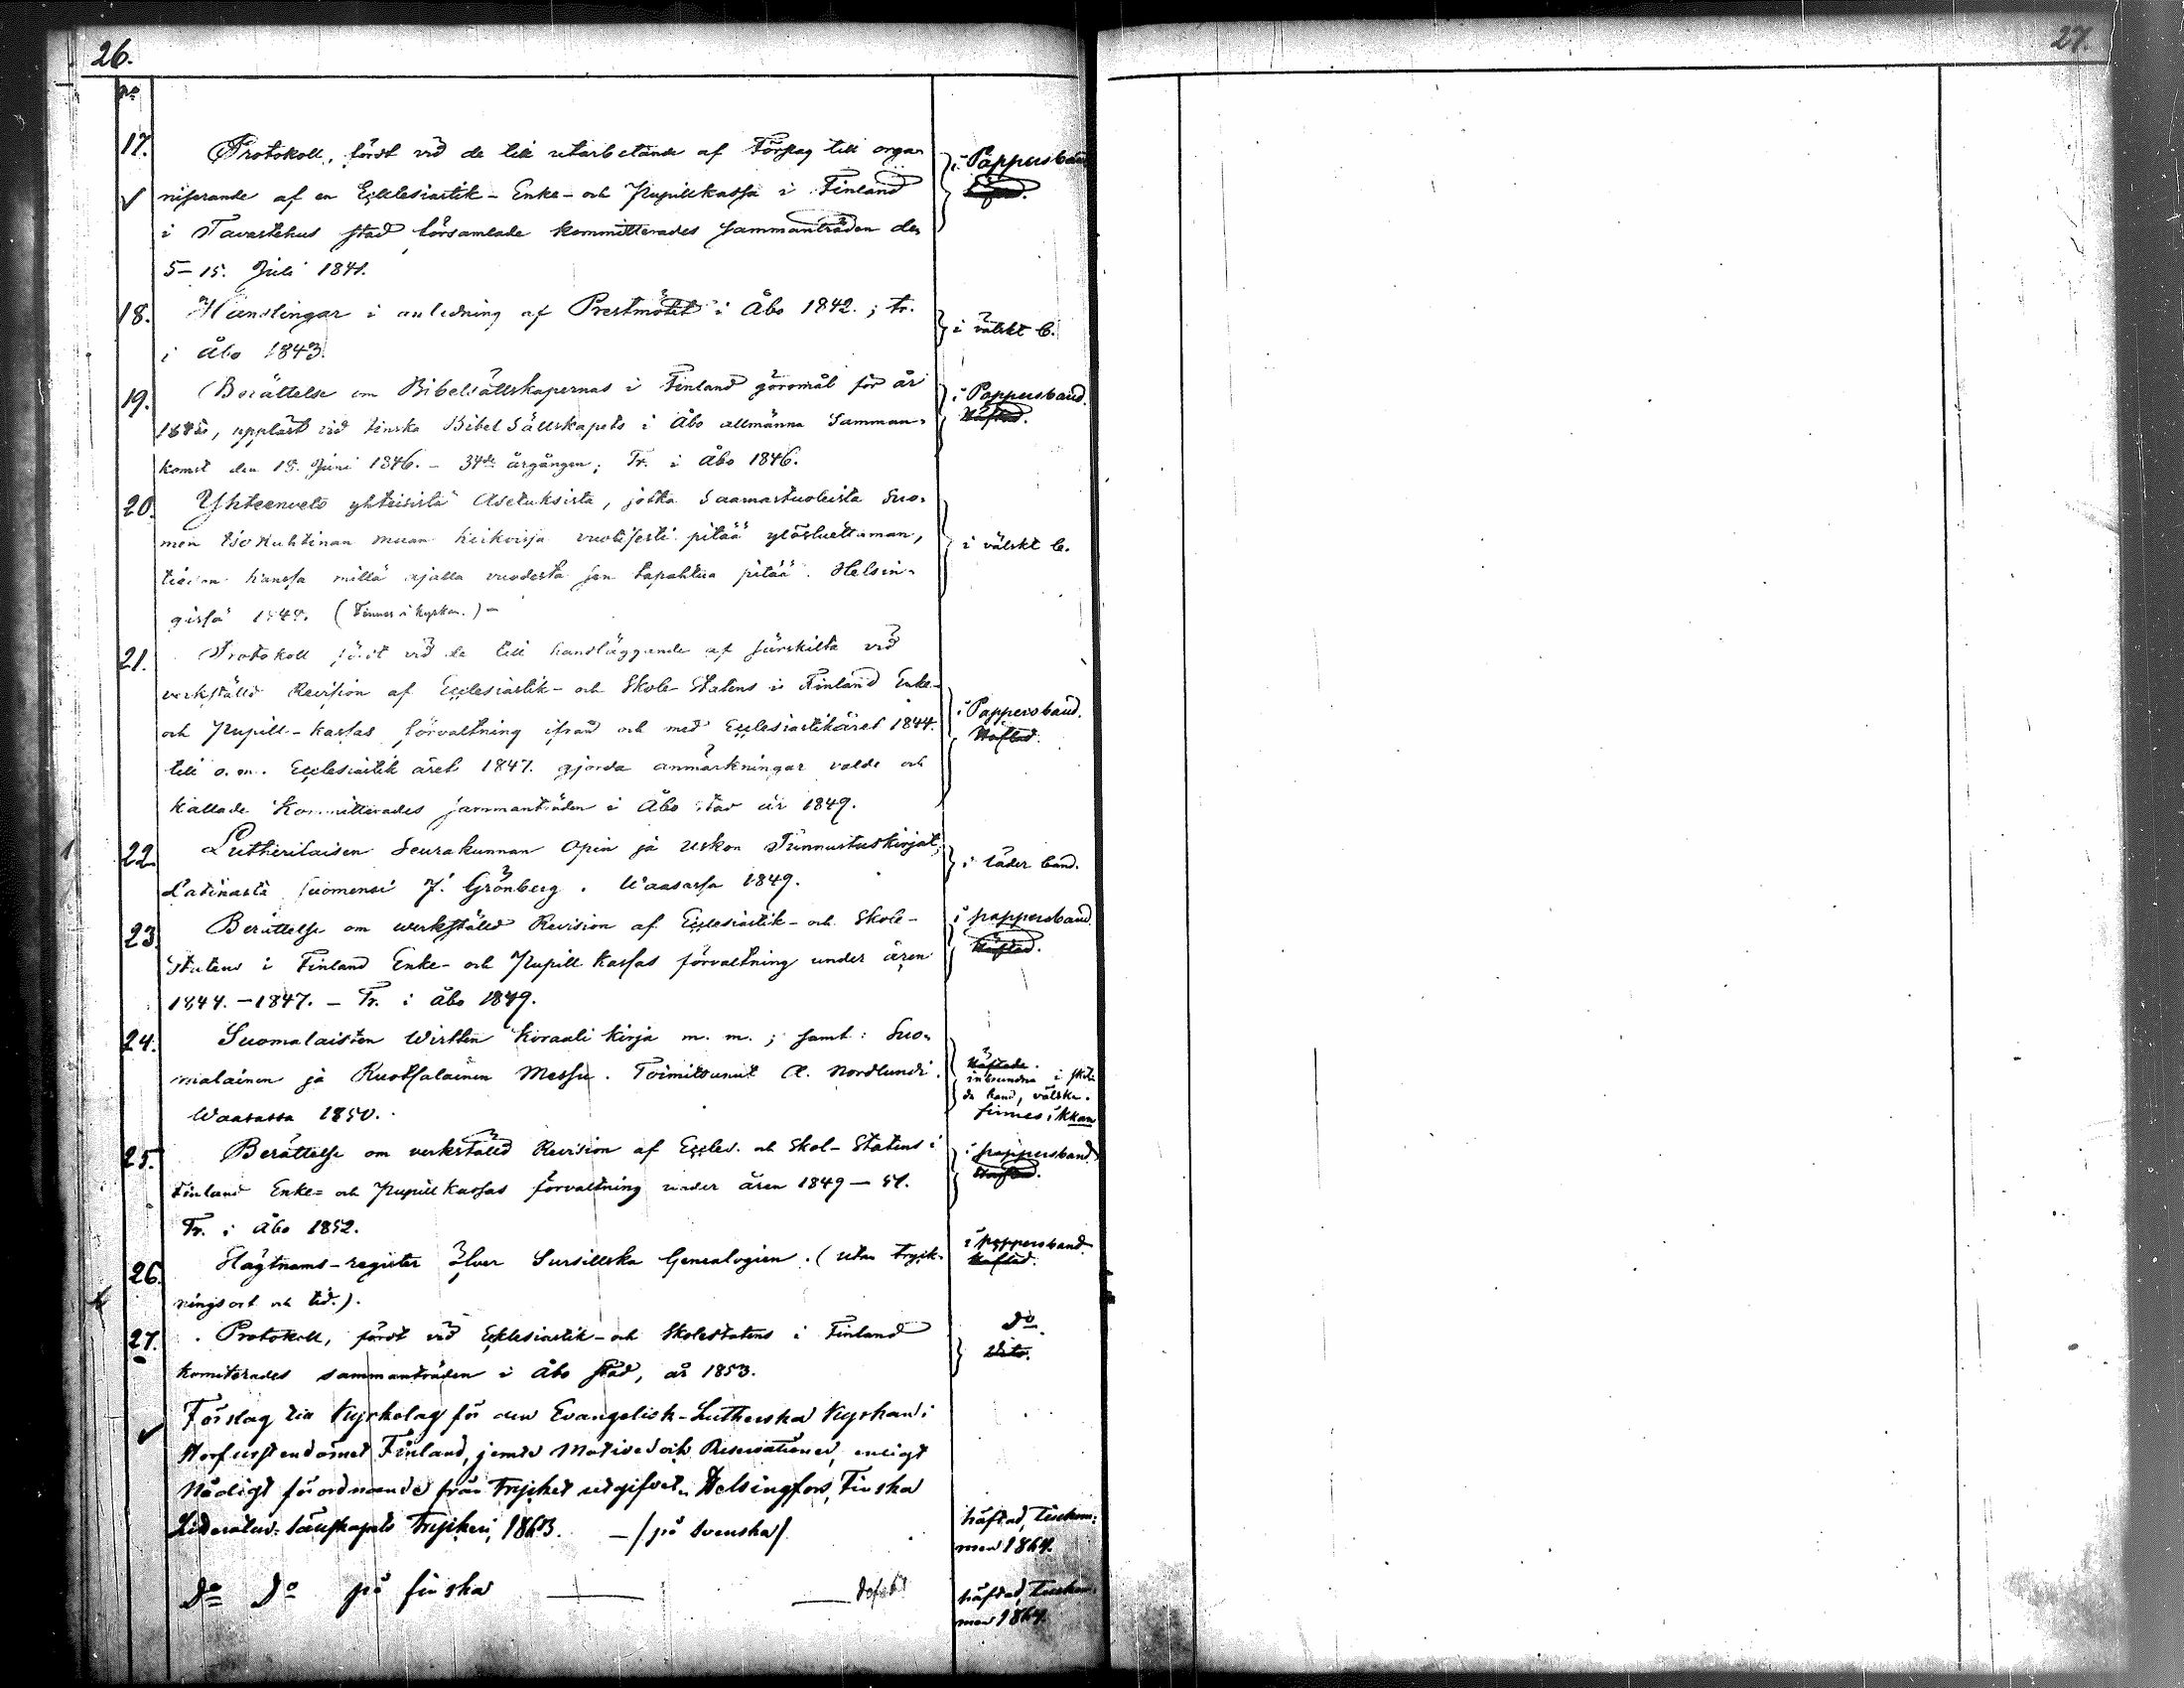 26.
27.
No
17. Protokoll, fördt vid de till utarbetande af Förslag till orga-
niserande af en Ecclesiastik- Enke- och Pupillkassa i Finland
i Tavastehus stad församlade kommitterades sammanträden den
5-15. Juli 1841.
i Pappersband
Häftad.
18. Handlingar i anledning af Prestmötet i Åbo 1842.; tr.
i Åbo 1843.
i välskt b.
19. Berättelse om Bibelsällskapernas i Finland göromål för år
1845, uppläst vid finska Bibel Sällskapets i Åbo allmänna Samman-
komst den 18. Juni 1846. - 34de årgången; Tr. i Åbo 1846.
i Pappersband.
Häftad.
20. Yhteenveto yhteisistä Asetuksista, jotka Saarnastuoleista Suo-
men Isoruhtinan maan kirkoisja vuotisesti pitää ylösluettaman,
tiedon kanssa millä ajalla vuodesta sen tapahtua pitää. Helsin-
gissä 1848. (Finnes i kyrkan.) -
i välskt b.
21. Protokoll fördt vid de till handläggande af särskilta vid
verkställd Revision af Ecclesiastik- och Skole-Statens i Finland Enke-
och Pupill-kassas förvaltning ifrån och med Ecclesiastikåret 1844.
till o. m. Ecclesiastik året 1847. gjorda anmärkningar valde och
kallade Kommitterades sammanträden i Åbo stad år 1849.
i Pappersband.
Häftad.
22. Lutherilaisen Seurakunnan Opin ja Uskon Tunnustuskirjat;
Latinasta suomensi J. Grönberg. Waasassa 1849.
i läder band.
23. Berättelse om werkställd Revision af Ecclesiastik- och Skole-
Statens i Finland Enke- och Pupill Kassas förvaltning under åren
1844.-1847. - Tr. i Åbo 1849.
i pappersband
Häftad.
24. Suomalaisten Wirtten Koraali Kirja m. m.; samt: Suo-
malainen ja Ruotsalainen Messu. Toimittanut A. Nordlund.
Waasassa 1850.
Häftade.
inbundna i skil-
da band, välska.
finnes i Kkan
25. Berättelse om verkställd Revision af Eccles. och Skol-Statens i
Finland Enke- och Pupill Kassas förvaltning under åren 1849-51.
Tr. i Åbo 1852.
i pappersband
Häftad.
26. Slägtnams-register öfver Sursillska Genealogien. (utan tryck-
nings ort och tid.).
i pappersband.
Häftad.
27. Protokoll, fördt vid Ecklesiastik- och Skolestatens i Finland
komiterades sammanträden i Åbo stad, år 1853.
Do
Dito.
Förslag till Kyrkolag för den Evangelisk-Lutherska Kyrkan i
Storfurstendömet Finland, jemte Motiver och Reservationer, enligt
Nådigt förordnande från Trycket utgifvet. Helsingfors, Finska
Literatur-Sällskapets Tryckeri, 1863. - /på Svenska/
häftad, Tillkom-
men 1864.
Do Do på finska — — defekt
häftad, Tillkom-
men 1864.